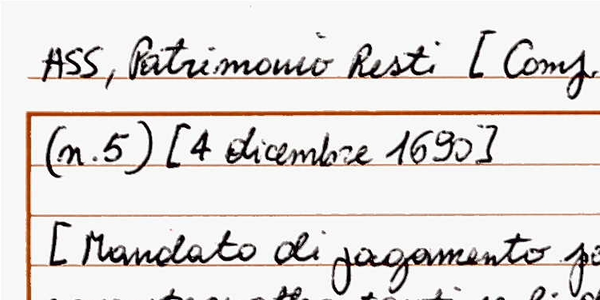 ASS, Patrimonio Resti [ Comp.
(n.5) [4 dicembre 1690]
[ Mandato di pagamento